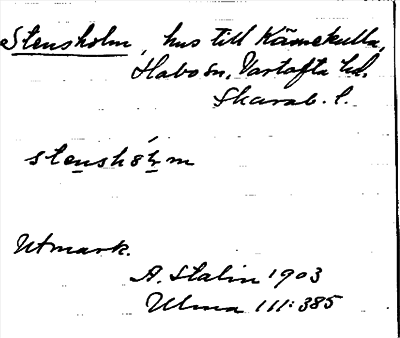 Stensholm, hus till Kärnekulla,
Habo sn, Vartofta hd.
Skarab. l.
stenshòlm
Utmark.
A. Stalin 1903
Ulma 111:385